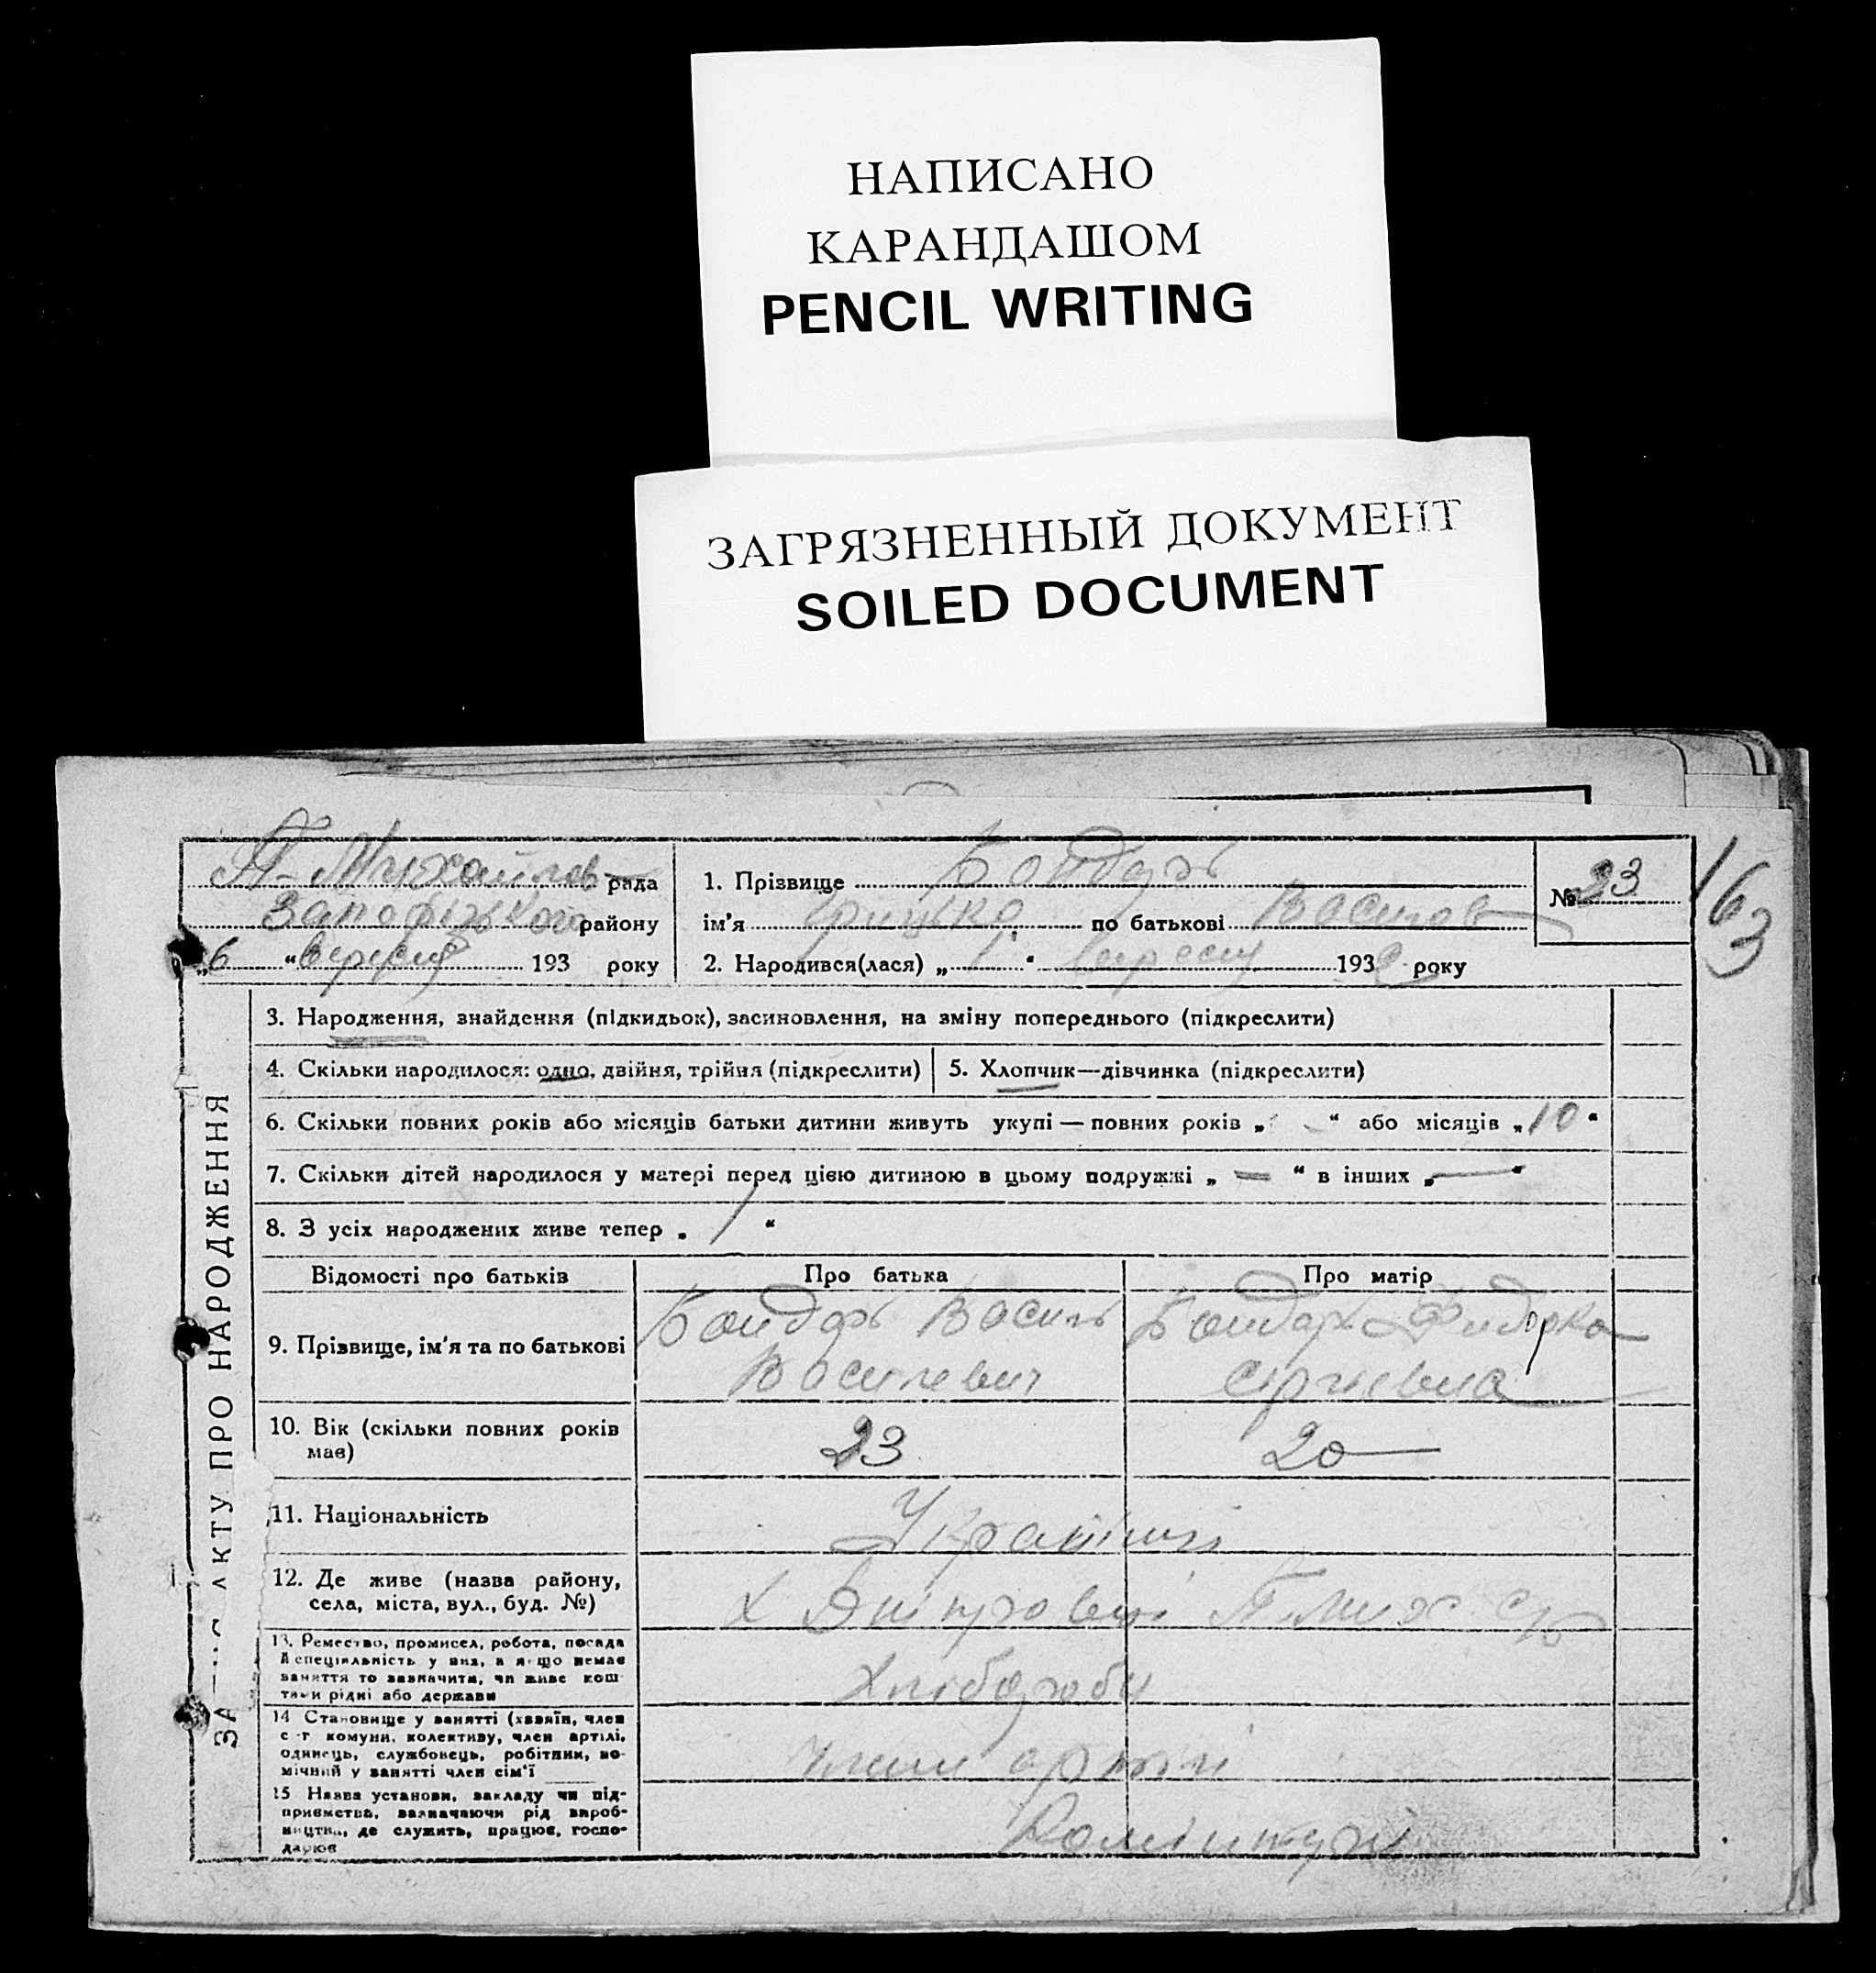 НАПИСАНО
КАРАНДАШОМ
PENCIL WRITING
ЗАГРЯЗНЕННЫЙ ДОКУМЕНТ
SOILED DOCUMENT
П-Михайлов рада
району
„6 “ 193 року
1. Прізвище Бондарь
ім'я Грицько по батькові Василов
2. Народився(лася) „ 1 “ 193 року
№ 23
163
ЗА АКТУ ПРО НАРОДЖЕННЯ
3. Народження, знайдення (підкидьок), засиновлення, на зміну попереднього (підкреслити)
4. Скільки народилося: одно, двійня, трійня (підкреслити)
5. Хлопчик—дівчинка (підкреслити)
6. Скільки повних років або місяців батьки дитини живуть укупі — повних років „ — “ або місяців „10“
7. Скільки дітей народилося у матері перед цією дитиною в цьому подружжі „ — “ в інших „ — “
8. З усіх народжених живе тепер „ 1 “
Відомості про батьків
Про батька
Про матір
9. Прізвище, ім'я та по батькові
Бондарь Василь
Василевич
Бондарь Фидорка
10. Вік (скільки повних років
має)
23
20
11. Національність
Українці
12. Де живе (назва району,
села, міста, вул., буд. №)
Х Дніпровці П-Мих с/р
13. Ремество, промисел, робота, посада
й спеціяльність у них, а якщо немає
заняття то зазначити, чи живе кош-
тами рідні або держави
Хлібороби
14 Становище у занятті (хазяїн, член
с-г комуни, колективу, член артілі,
одинець, службовець, робітник, по-
мічний у занятті член сім'ї
члени артілі
15 Назва установи, закладу чи під-
приємства, зазначаючи рід вироб-
ництва, де служить, працює, госпо-
дарює